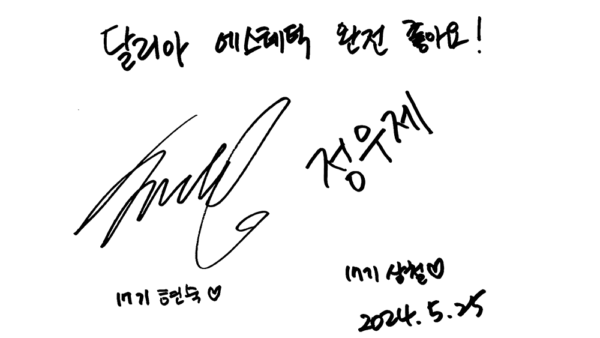 달리아 에스테틱 완전 좋아요!
정우제
17기 현숙♡
17기 상철♡
2024.5.25